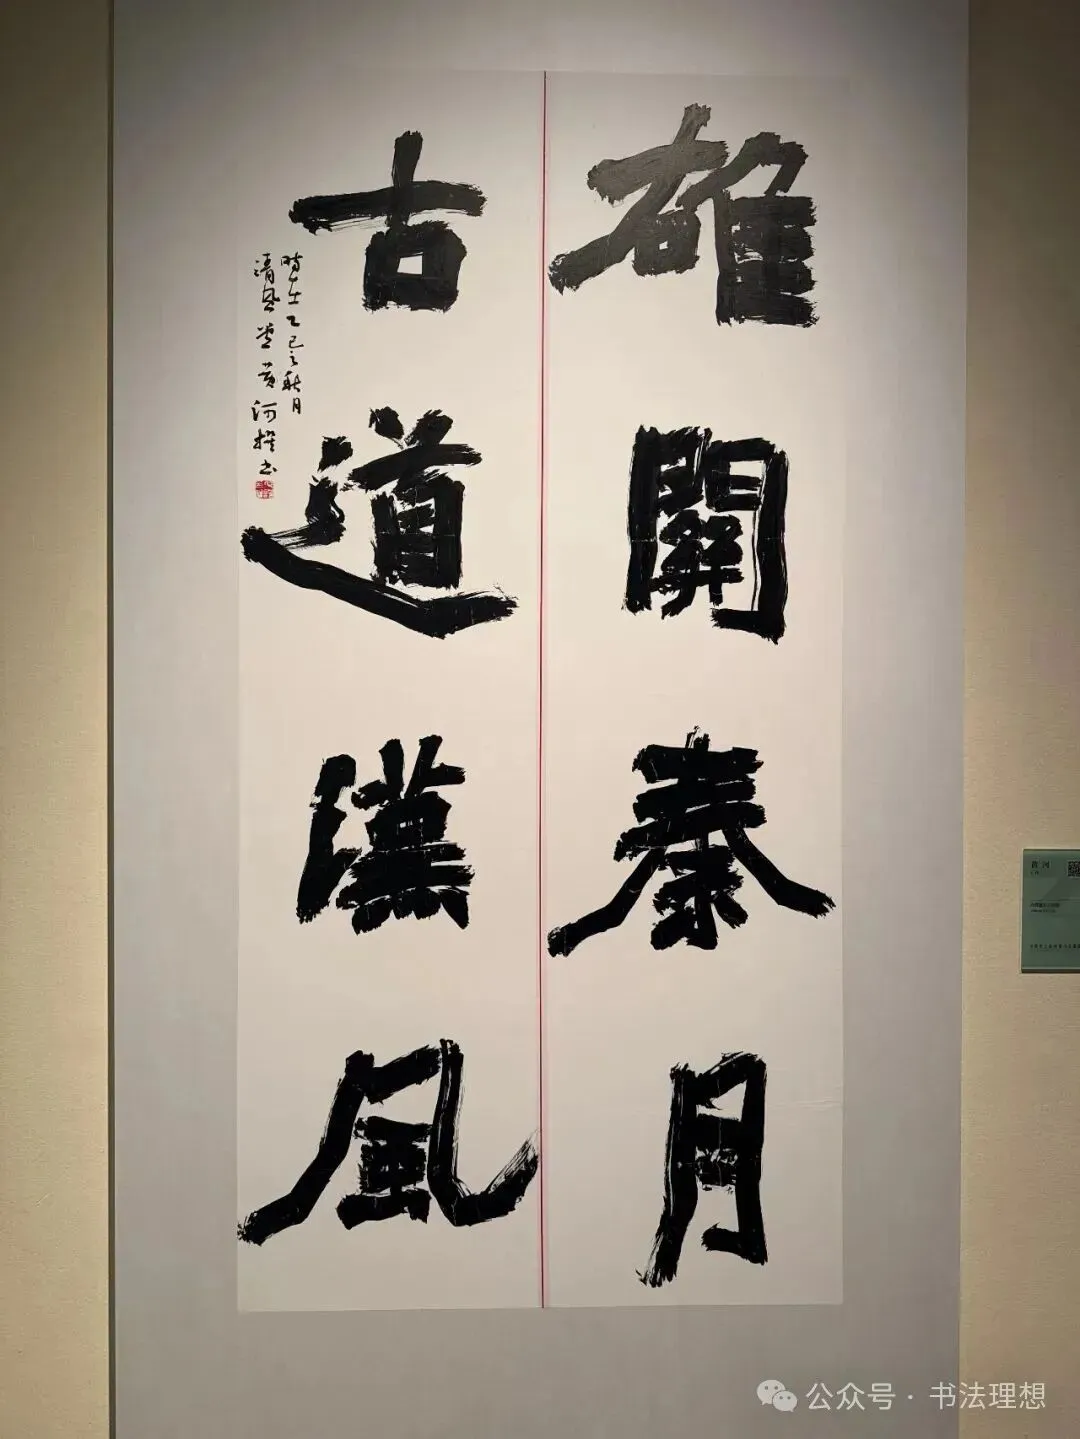 雄關秦月
古道漢風
時在乙巳之秋月
清風堂黄河撰書
黄河
公众号 · 书法理想